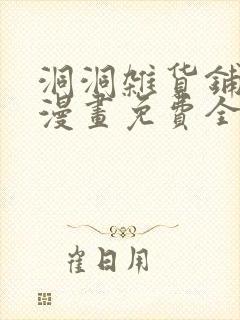 洞洞雜貨鋪
漫畫免費全
崔日用